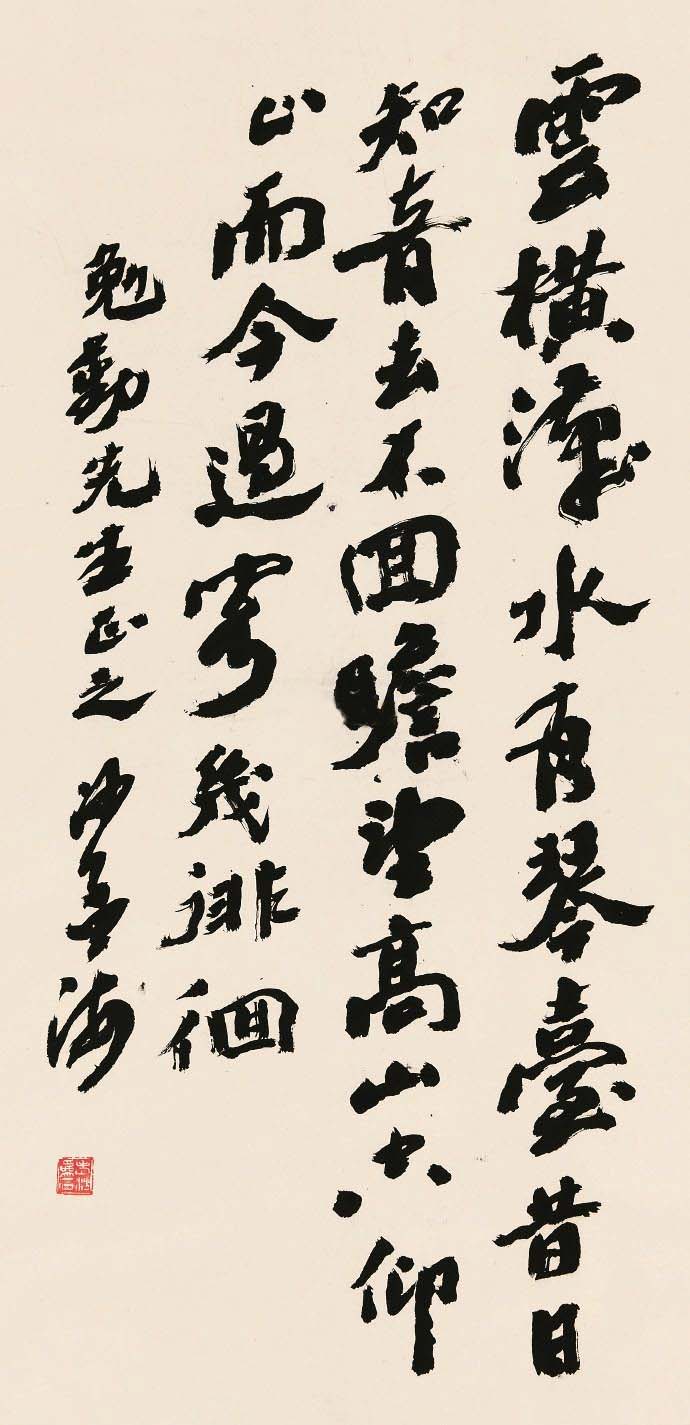 雲橫漢水有琴臺昔日
知音去不回瞻望高山共仰
止而今過客幾徘徊
勉勤先生正之 沙孟海